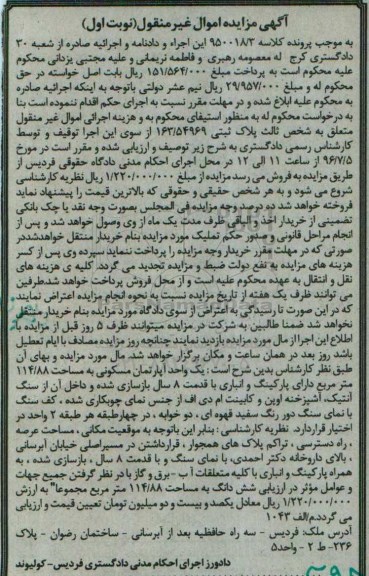 آگهی مزایده اموال غیر منقول(نوبت اول)
به موجب پرونده کلاسه 950018/3 این اجراء و دادنامه و اجرائیه صادره از شعبه 30
دادگستری کرج له معصومه رهبری و فاطمه نریمانی و علیه مجتبی یزدانی محکوم
علیه محکوم است به پرداخت مبلغ 151/564/000 ریال بابت اصل خواسته در حق
محکوم له و مبلغ 29/957/000 ریال نیم عشر دولتی باتوجه به اینکه اجرائیه صادره
به محکوم علیه ابلاغ شده و در مهلت مقرر نسبت به اجرای حکم اقدام ننموده است بنا
به درخواست محکوم له به منظور استیفای محکوم به و هزینه اجرائی اموال غیر منقول
متعلق به شخص ثالث پلاک ثبتی 163/54969 از سوی این اجرا توقیف و توسط
کارشناس رسمی دادگستری به شرح زیر توصیف و ارزیابی شده و مقرر است در مورخ
96/7/5 از ساعت 11 الی 12 در محل اجرای احکام مدنی دادگاه حقوقی فردیس از
طریق مزایده به فروش می رسد مزایده از مبلغ 1/220/000/000 ریال نظریه کارشناسی
شروع می شود و به هر شخص حقیقی و حقوقی که بالاترین قیمت را پیشنهاد نماید
فروخته خواهد شد ده درصد وجه مزایده فی المجلس بصورت وجه نقد یا چک بانکی
تضمینی از خریدار اخذ و الباقی ظرف مدت یک ماه از وی وصول خواهد شد و پس از
انجام مراحل قانونی و صدور حکم تملیک مورد مزایده بنام خریدار منتقل خواهدشددر
صورتی که در مهلت مقرر خریدار وجه مزایده را پرداخت ننماید سپرده وی پس از کسر
هزینه های مزایده به نفع دولت ضبط و مزایده تجدید می گردد. کلیه ی هزینه های
نقل و انتقال به عهده محکوم علیه است و از محل فروش پرداخت خواهد شدطرفین
می توانند ظرف یک هفته از تاریخ مزایده نسبت به نحوه انجام مزایده اعتراض نمایند
که در این صورت تا رسیدگی به اعتراض از سوی دادگاه مورد مزایده بنام خریدار منتقل
نخواهد شد ضمنا طالبین به شرکت در مزایده میتوانند ظرف 5 روز قبل از مزایده با
اطلاع این اجرا از مال مورد مزایده بازدید نمایند چنانچه روز مزایده مصادف با ایام تعطیل
باشد روز بعد در همان ساعت و مکان برگزار خواهد شد. مال مورد مزایده و بهای آن
طبق نظر کارشناس بدین شرح است : یک واحد آپارتمان مسکونی به مساحت 114/88
متر مربع دارای پارکینگ و انباری با قدمت 8 سال بازسازی شده و داخل آن از سنگ
آنتیک، آشپزخانه اوپن و کابینت ام دی اف از جنس نمای چوبکاری شده ، کف سنگ
با نمای سنگ دور رنگ سفید قهوه ای ، دو خوابه ، در چهارطبقه هر طبقه 2 واحد در
اختیار قراردارد. نظریه کارشناسی : بنابر این باتوجه به موقعیت مکانی ، مساحت عرصه
، راه دسترسی ، تراکم پلاک های همجوار ، قرارداشتن در مسیراصلی خیابان آبرسانی
، بالای داروخانه دکتر احمدی، با نمای سنگ و با قدمت 8 سال ، بازسازی شده ، به
همراه پارکینگ و انباری با کلیه متعلقات آب -برق و گاز با در نظر گرفتن جمیع جهات
و عوامل مؤثر در ارزیابی شش دانگ به مساحت 114/88 متر مربع مجموعا" به ارزش
1/220/000/000 ریال معادل یکصد و بیست و دو میلیون تومان تعیین قیمت و ارزیابی
می گردد.م/الف 1043
آدرس ملک: فردیس - سه راه حافظیه بعد از آبرسانی - ساختمان رضوان - پلاک
236- ط 2 - واحد5
دادورز اجرای احکام مدنی دادگستری فردیس- کولیوند